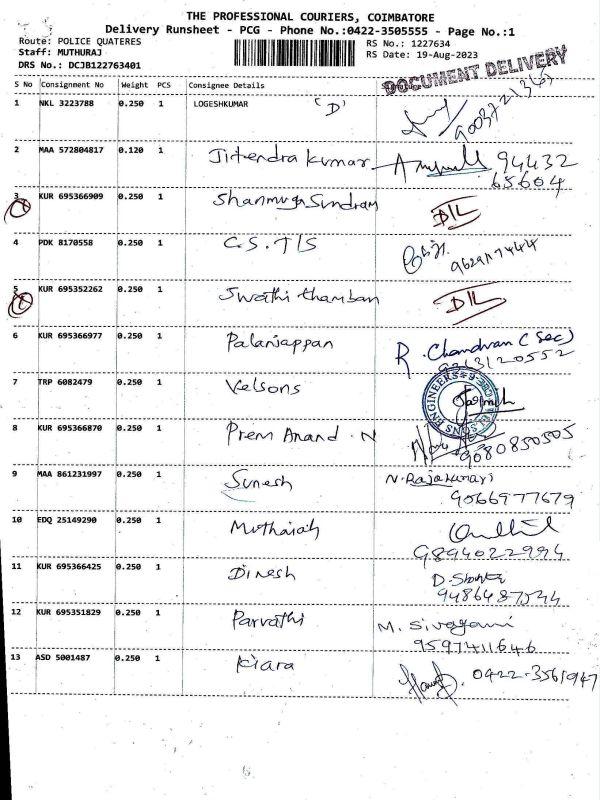 THE PROFESSIONAL COURIERS, COIMBATORE
Delivery Runsheet - PCG - Phone No.:0422-3505555 - Page No.:1
Route: POLICE QUATERES RS No.: 1227634
Staff: MUTHURAJ RS Date: 19-Aug-2023
DRS No.: DCJB122763401
DOCUMENT DELIVERY
S No Consignment No Weight PCS Consignee Details
1 NKL 3223788 0.250 1 LOGESHKUMAR (D)
2 MAA 572804817 0.120 1 Jitendra Kumar 94432
65604
3 KUR 695366909 0.250 1 Shanmuga Sundram D/L
4 PDK 8170558 0.250 1 C.S. T/S
5 KUR 695352262 0.250 1 Swathi thamban D/L
6 KUR 695366977 0.250 1 Palaniappan R. Chandran (Sec)
7 TRP 6082479 0.250 1 Velsons
8 KUR 695366870 0.250 1 Prem Anand . N
9080850505
9 MAA 861231997 0.250 1 Suresh N. Rajakumari
9066977679
10 EDQ 25149290 0.250 1 Muthaiah
9894022994
11 KUR 695366425 0.250 1 Dinesh
12 KUR 695351829 0.250 1 Parvathi M. Sivagami
9597411646
13 ASD 5001487 0.250 1 Kiara 0422-3561947